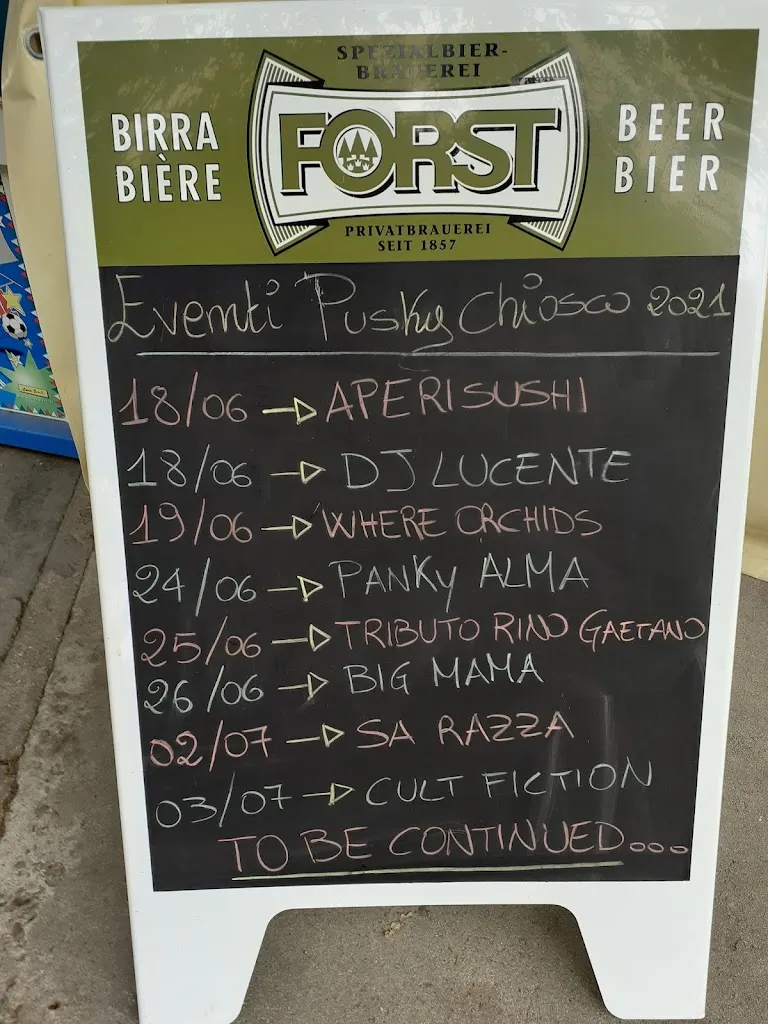 SPEZIALBIER-
BRAUEREI
BIRRA
BIÈRE
FORST
BEER
BIER
PRIVATBRAUEREI
SEIT 1857
Eventi Pusky Chiosco 2021
18/06 → APERISUSHI
18/06 → DJ LUCENTE
19/06 → WHERE ORCHIDS
24/06 → PANKY ALMA
25/06 → TRIBUTO RINO GAETANO
26/06 → BIG MAMA
02/07 → SA RAZZA
03/07 → CULT FICTION
TO BE CONTINUED...